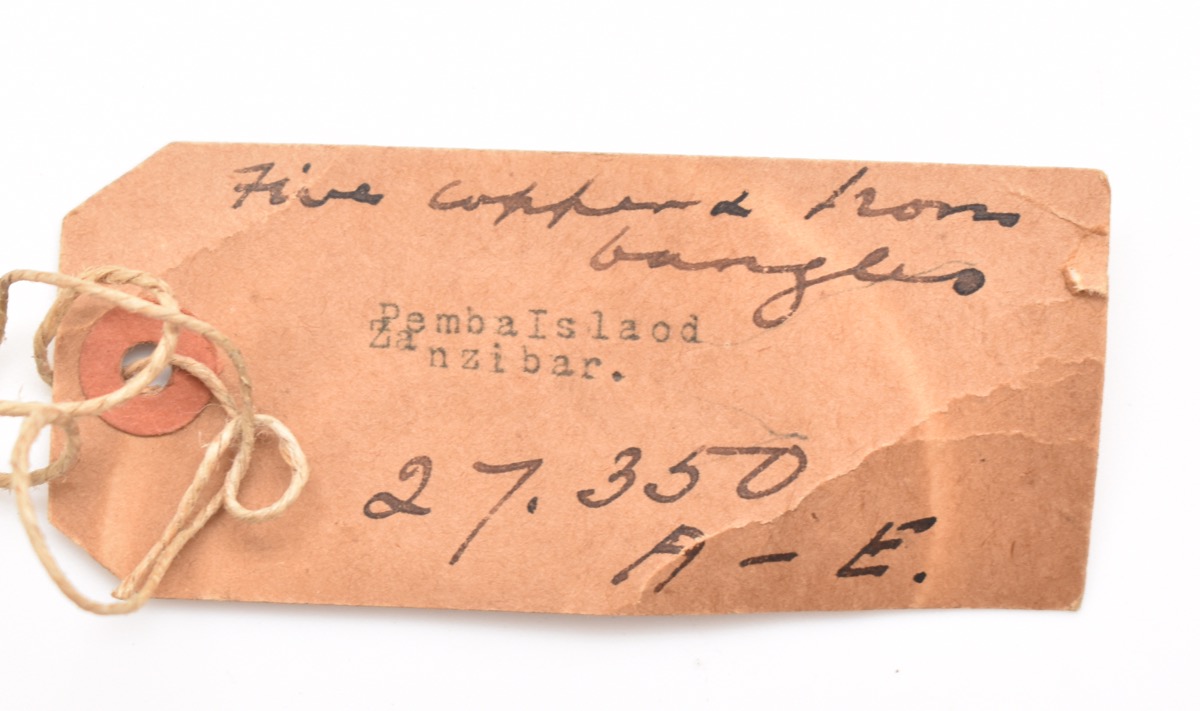 Five copper & Iron
bangles
Pemba Islaod
Zanzibar.
27.350
A - E.